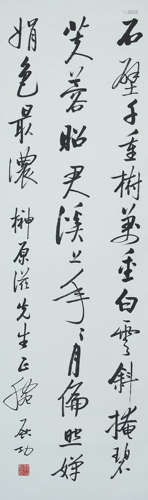 石壁千重樹萬重白雲斜掩碧
芙蓉昭君溪上年〻月偏照嬋
娟色最濃 榊原滋先生正腕 启功